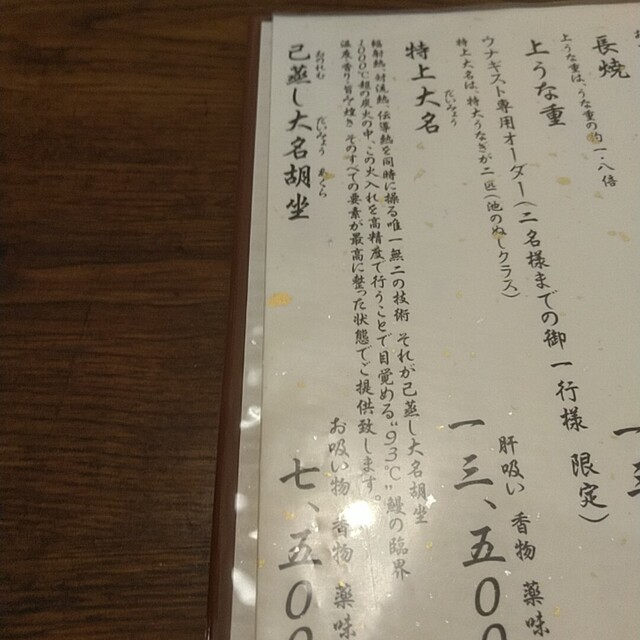 長焼
上うな重は、うな重の約一、八倍
上うな重
ウナギスト専用オーダー(二名様までの御一行様 限定)
特上大名は、特大うなぎが二匹(池のぬしクラス)
だいみょう
特上大名
肝吸い 香物 薬味
一三、五〇〇
輻射熱、対流熱、伝導熱を同時に操る唯一無二の技術 それが己蒸し大名胡坐
1000℃超の炭火の中、この火入れを高精度で行うことで目覚める“93℃”鰻の臨界
そのすべての要素が最高に整った状態でご提供致します。
おのれむ だいみょう あぐら
己蒸し大名胡坐
お吸い物 香物 薬味
七、五〇〇